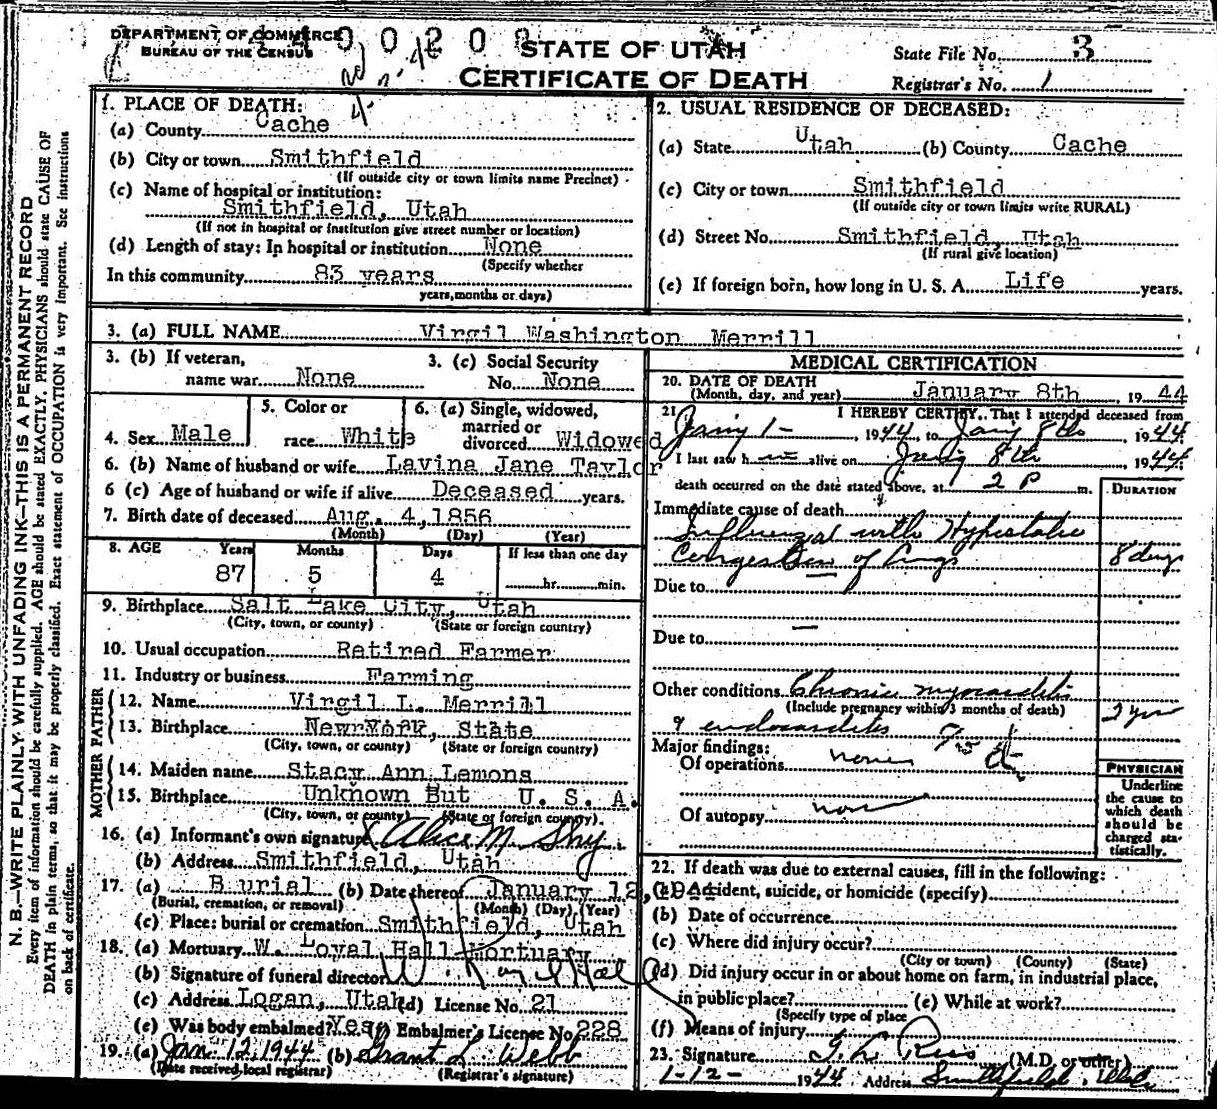 DEPARTMENT OF COMMERCE
BUREAU OF THE CENSUS
0 0 2 0 8
STATE OF UTAH
CERTIFICATE OF DEATH
State File No. 3
Registrar's No. 1
1. PLACE OF DEATH:
(a) County Cache
(b) City or town Smithfield
(If outside city or town limits name Precinct)
(c) Name of hospital or institution:
Smithfield, Utah
(If not in hospital or institution give street number or location)
(d) Length of stay: In hospital or institution None
(Specify whether
In this community 83 years
years, months or days)
2. USUAL RESIDENCE OF DECEASED:
(a) State Utah (b) County Cache
(c) City or town Smithfield
(If outside city or town limits write RURAL)
(d) Street No. Smithfield, Utah
(If rural give location)
(e) If foreign born, how long in U. S. A. Life years.
3. (a) FULL NAME Virgil Washington Merrill
3. (b) If veteran,
name war None
3. (c) Social Security
No. None
4. Sex Male
5. Color or
race White
6. (a) Single, widowed,
married or
divorced Widowed
6. (b) Name of husband or wife Lavina Jane Taylor
6 (c) Age of husband or wife if alive Deceased years.
7. Birth date of deceased Aug. 4, 1856
(Month) (Day) (Year)
8. AGE Years Months Days If less than one day
87 5 4 hr. min.
9. Birthplace Salt Lake City, Utah
(City, town, or county) (State or foreign country)
10. Usual occupation Retired Farmer
11. Industry or business Farming
FATHER
12. Name Virgil L. Merrill
13. Birthplace New York, State
(City, town, or county) (State or foreign country)
MOTHER
14. Maiden name Stacy Ann Lemons
15. Birthplace Unknown But U. S. A.
(City, town, or county) (State or foreign country)
16. (a) Informant's own signature Alice M. Shy
(b) Address Smithfield, Utah
17. (a) Burial (b) Date thereof January 12, 1944
(Burial, cremation, or removal) (Month) (Day) (Year)
(c) Place: burial or cremation Smithfield, Utah
18. (a) Mortuary W. Loyal Hall Mortuary
(b) Signature of funeral director W. Loyal Hall
(c) Address Logan, Utah (d) License No. 21
(e) Was body embalmed? Yes (f) Embalmer's License No. 228
19. (a) Jan. 12, 1944 (b) Grant L. Webb
(Date received, local registrar) (Registrar's signature)
MEDICAL CERTIFICATION
20. DATE OF DEATH
(Month, day, and year) January 8th, 1944
21. I HEREBY CERTIFY, That I attended deceased from
Jany 1-, 1944, to Jany 8th, 1944.
I last saw h im alive on Jany 8th 1944
death occurred on the date stated above, at 2 P m.
DURATION
Immediate cause of death
Influenza with Hypostatic
Congestion of lungs 8 days
Due to
Due to
Other conditions Chronic myocarditis
(Include pregnancy within 3 months of death)
& endocarditis 2 yrs
Major findings:
Of operations none
Of autopsy none
PHYSICIAN
Underline
the cause to
which death
should be
charged sta-
tistically.
22. If death was due to external causes, fill in the following:
(a) Accident, suicide, or homicide (specify)
(b) Date of occurrence
(c) Where did injury occur?
(City or town) (County) (State)
(d) Did injury occur in or about home on farm, in industrial place,
in public place? (e) While at work?
(Specify type of place
(f) Means of injury
23. Signature (M.D. or other)
1-12- 1944 Address Smithfield, Utah
N. B.—WRITE PLAINLY WITH UNFADING INK—THIS IS A PERMANENT RECORD
Every item of information should be carefully supplied. AGE should be stated EXACTLY. PHYSICIANS should state CAUSE OF
DEATH in plain terms, so that it may be properly classified. Exact statement of OCCUPATION is very important. See instructions
on back of certificate.